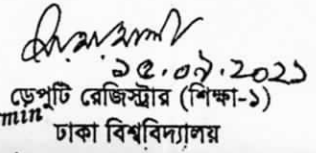 ১৫.০৯.২০২১
ডেপুটি রেজিস্ট্রার (শিক্ষা-১)
min
ঢাকা বিশ্ববিদ্যালয়